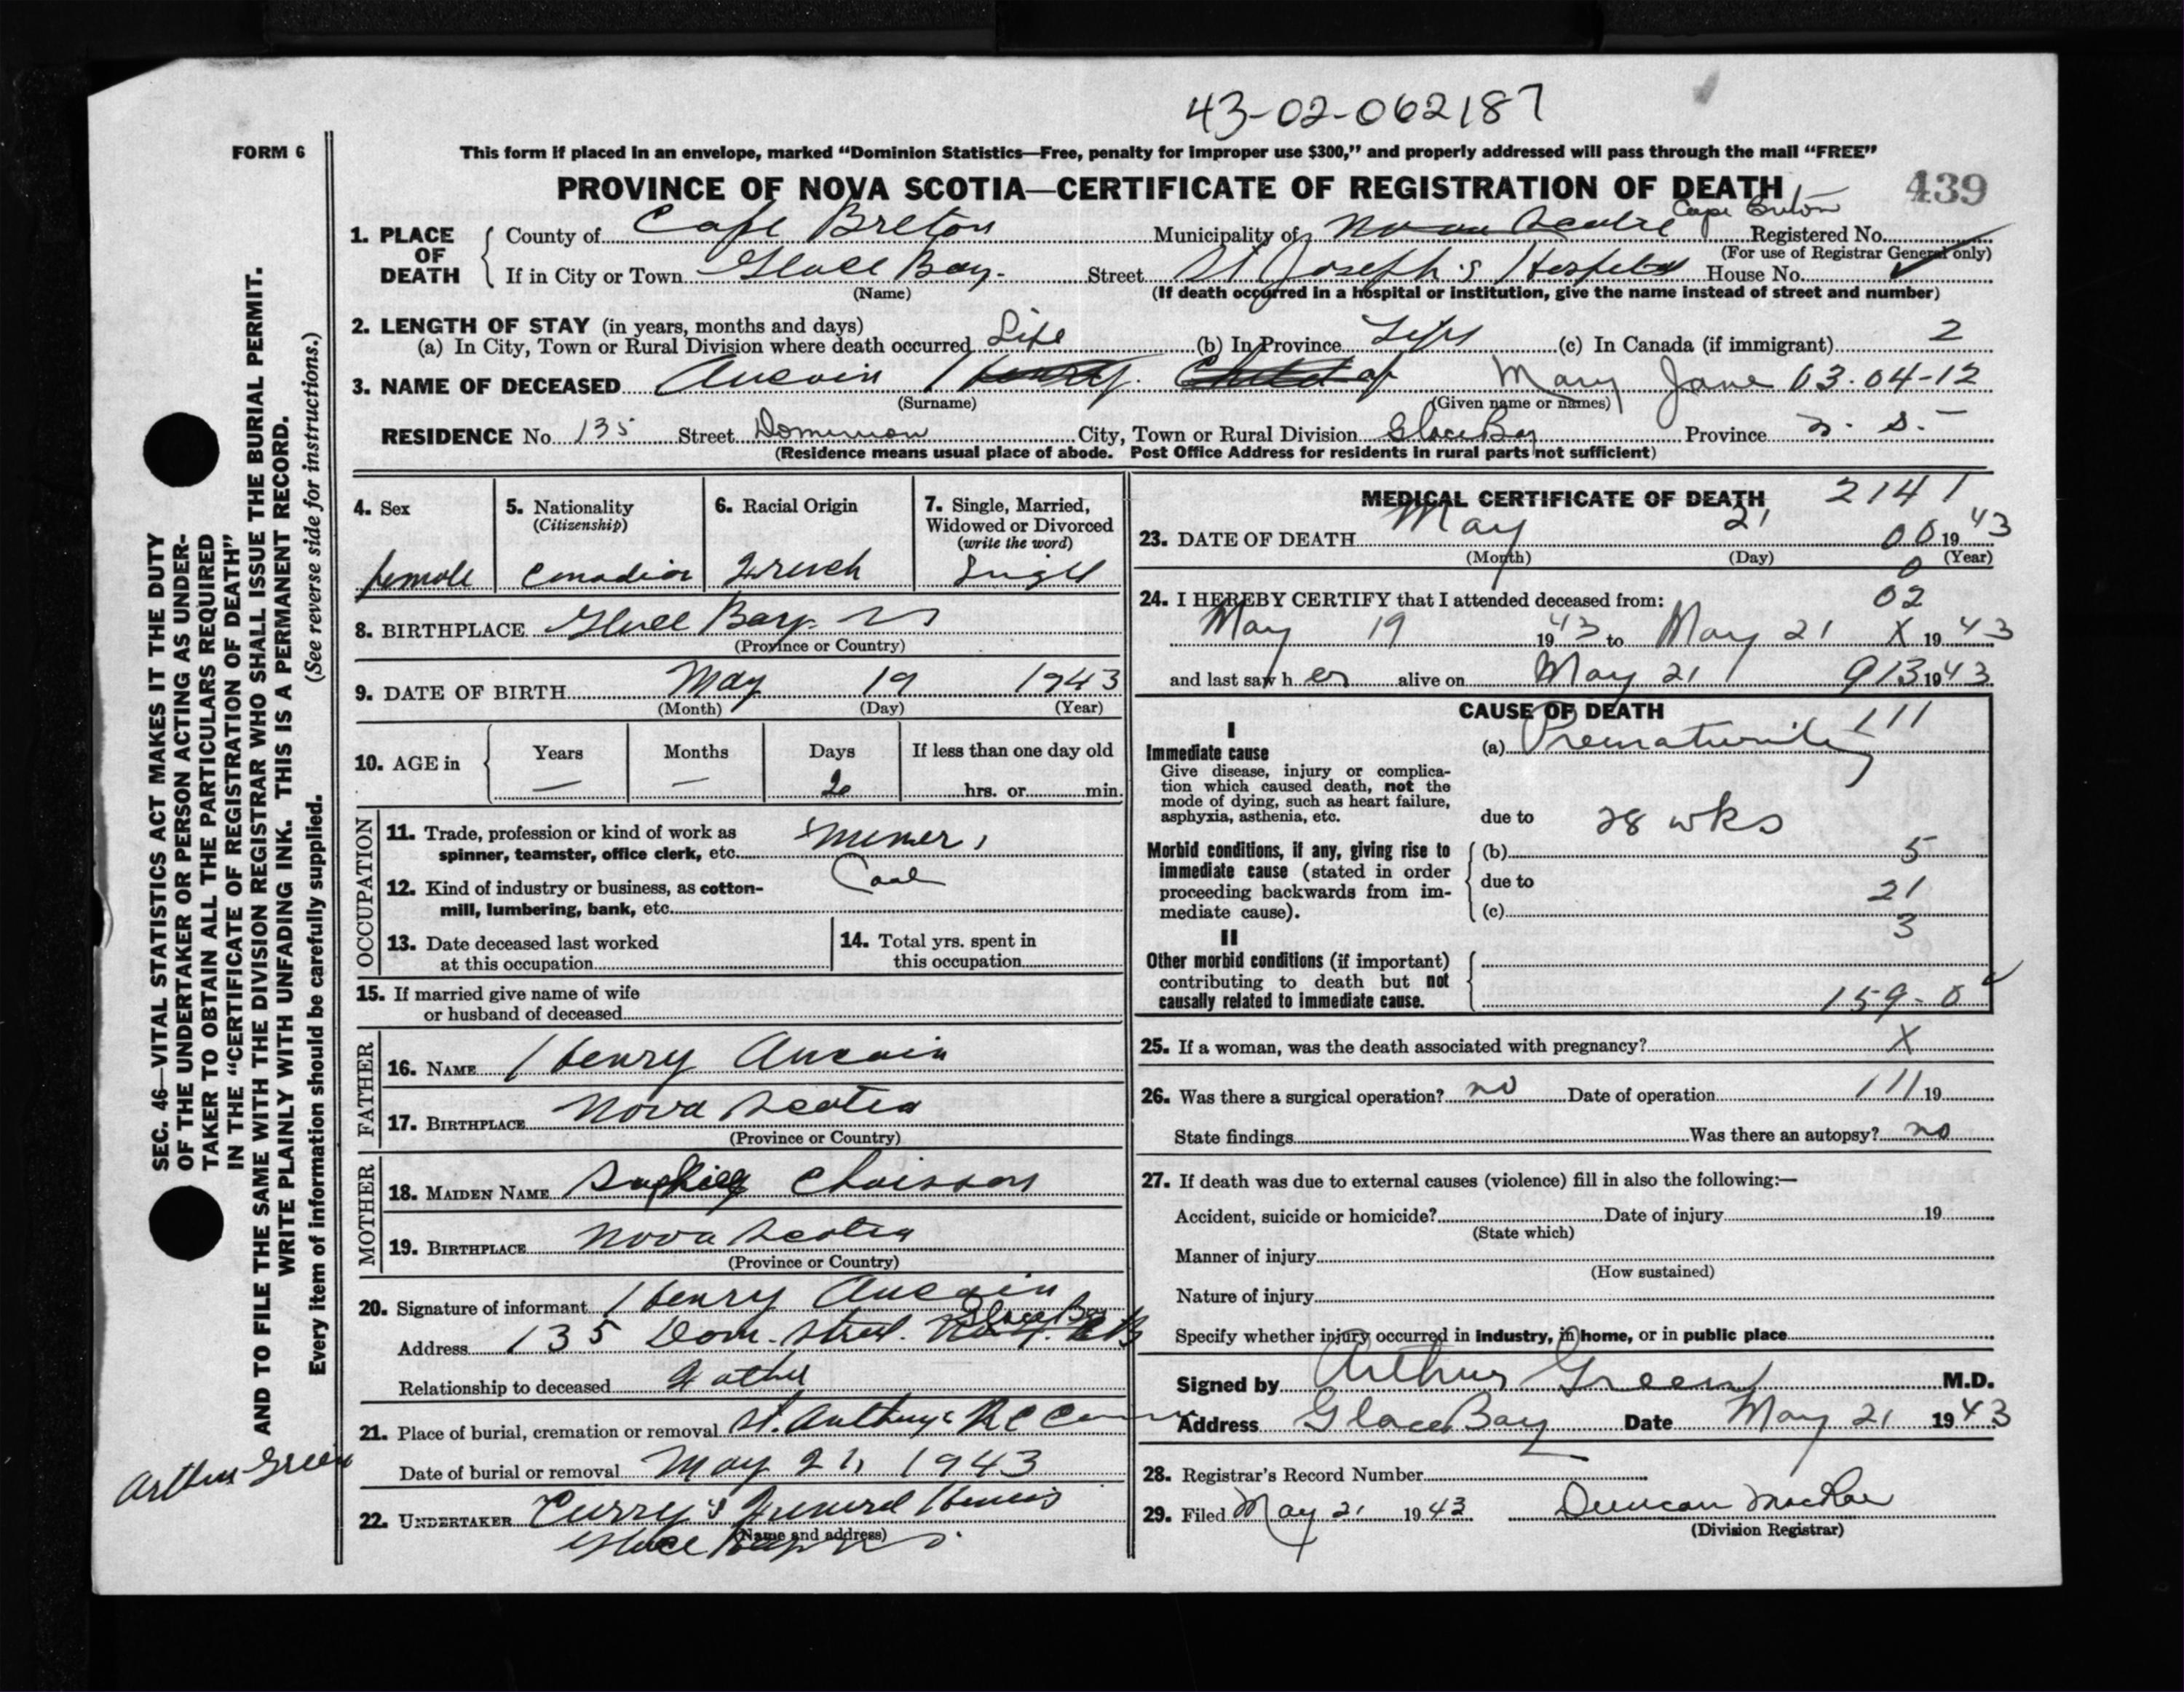 43-02-062187
FORM 6
This form if placed in an envelope, marked “Dominion Statistics—Free, penalty for improper use $300,” and properly addressed will pass through the mail “FREE”
PROVINCE OF NOVA SCOTIA—CERTIFICATE OF REGISTRATION OF DEATH
439
1. PLACE OF DEATH
County of Cape Breton Municipality of Nova Scotia Cape Breton Registered No.
(For use of Registrar General only)
If in City or Town Glace Bay. Street St Joseph's Hospital House No.
(Name) (If death occurred in a hospital or institution, give the name instead of street and number)
2. LENGTH OF STAY (in years, months and days)
(a) In City, Town or Rural Division where death occurred Life (b) In Province Life (c) In Canada (if immigrant) 2
3. NAME OF DECEASED Aucoin Henry. Child of Mary Jane 03-04-12
(Surname) (Given name or names)
RESIDENCE No. 135 Street Dominion City, Town or Rural Division Glace Bay Province N. S.
(Residence means usual place of abode. Post Office Address for residents in rural parts not sufficient)
4. Sex
female
5. Nationality
(Citizenship)
Canadian
6. Racial Origin
French
7. Single, Married,
Widowed or Divorced
(write the word)
Single
8. BIRTHPLACE Glace Bay. NS
(Province or Country)
9. DATE OF BIRTH May 19 1943
(Month) (Day) (Year)
10. AGE in
Years Months Days If less than one day old
— — 2 hrs. or min.
OCCUPATION
11. Trade, profession or kind of work as
spinner, teamster, office clerk, etc. miner
12. Kind of industry or business, as cotton-
mill, lumbering, bank, etc. Coal
13. Date deceased last worked
at this occupation
14. Total yrs. spent in
this occupation
15. If married give name of wife
or husband of deceased
FATHER
16. NAME Henry Aucoin
17. BIRTHPLACE Nova Scotia
(Province or Country)
MOTHER
18. MAIDEN NAME Chaisson
19. BIRTHPLACE Nova Scotia
(Province or Country)
20. Signature of informant Henry Aucoin
Address 135 Dom. Street. Glace Bay
Relationship to deceased Father
21. Place of burial, cremation or removal St. Anthony's RC Cem
Date of burial or removal May 21, 1943
22. UNDERTAKER Curry's Funeral Home
(Name and address)
Glace Bay NS.
MEDICAL CERTIFICATE OF DEATH 2141
23. DATE OF DEATH May 21 00 1943
(Month) (Day) (Year)
0
24. I HEREBY CERTIFY that I attended deceased from: 02
May 19 1943 to May 21 X 1943
and last saw her alive on May 21 913 1943
CAUSE OF DEATH 111
I
Immediate cause
Give disease, injury or complica-
tion which caused death, not the
mode of dying, such as heart failure,
asphyxia, asthenia, etc.
(a) Prematurity
due to 28 wks
Morbid conditions, if any, giving rise to
immediate cause (stated in order
proceeding backwards from im-
mediate cause).
(b) 5
due to 21
(c)
3
II
Other morbid conditions (if important)
contributing to death but not
causally related to immediate cause.
159-0
25. If a woman, was the death associated with pregnancy? X
26. Was there a surgical operation? no Date of operation 111 19
State findings Was there an autopsy? no
27. If death was due to external causes (violence) fill in also the following:—
Accident, suicide or homicide? Date of injury 19
(State which)
Manner of injury
(How sustained)
Nature of injury
Specify whether injury occurred in industry, in home, or in public place
Signed by Arthur Green M.D.
Address Glace Bay Date May 21 1943
28. Registrar's Record Number
29. Filed May 21 1943 Duncan MacRae
(Division Registrar)
SEC. 46—VITAL STATISTICS ACT MAKES IT THE DUTY
OF THE UNDERTAKER OR PERSON ACTING AS UNDER-
TAKER TO OBTAIN ALL THE PARTICULARS REQUIRED
IN THE “CERTIFICATE OF REGISTRATION OF DEATH”
AND TO FILE THE SAME WITH THE DIVISION REGISTRAR WHO SHALL ISSUE THE BURIAL PERMIT.
WRITE PLAINLY WITH UNFADING INK. THIS IS A PERMANENT RECORD.
Every item of information should be carefully supplied. (See reverse side for instructions.)
Arthur Green